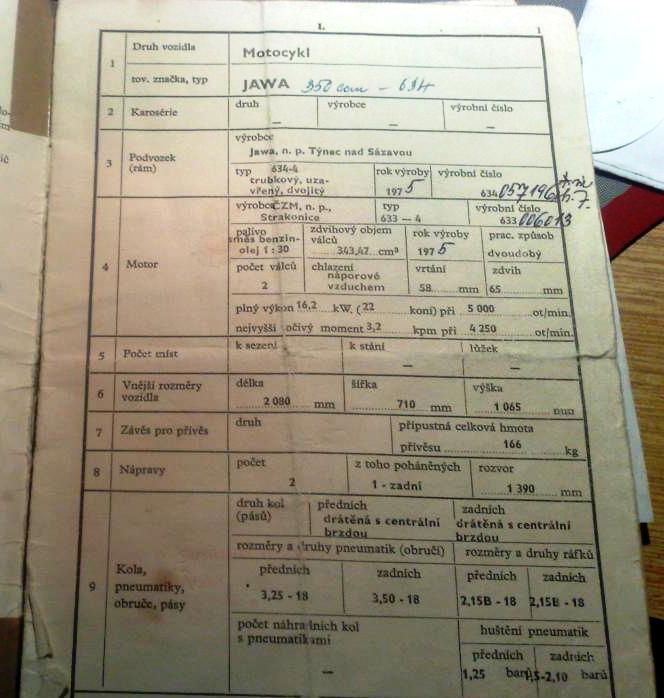 I.
1
1
Druh vozidla
Motocykl
tov. značka, typ
JAWA 350 ccm - 634
2
Karosérie
druh
výrobce
výrobní číslo
—
—
—
3
Podvozek
(rám)
výrobce
Jawa, n. p. Týnec nad Sázavou
typ 634-4
trubkový, uza-
vřený, dvojitý
rok výroby
1975
výrobní číslo
634 057196
4
Motor
výrobce ČZM, n. p.,
Strakonice
typ
633 — 4
výrobní číslo
633 006013
palivo
směs benzin-
olej 1 : 30
zdvihový objem
válců
343,47 cm³
rok výroby
1975
prac. způsob
dvoudobý
počet válců
2
chlazení
náporové
vzduchem
vrtání
58 mm
zdvih
65 mm
plný výkon 16,2 kW. (22 koní) při 5 000 ot/min.
nejvyšší točivý moment 3,2 kpm při 4 250 ot/min.
5
Počet míst
k sezení
k stání
lůžek
—
—
6
Vnější rozměry
vozidla
délka
2 080 mm
šířka
710 mm
výška
1 065 mm
7
Závěs pro přívěs
druh
přípustná celková hmota
přívěsu 166 kg
8
Nápravy
počet
2
z toho poháněných
1 - zadní
rozvor
1 390 mm
9
Kola,
pneumatiky,
obruče, pásy
druh kol
(pásů)
předních
drátěná s centrální
brzdou
zadních
drátěná s centrální
brzdou
rozměry a druhy pneumatik (obručí)
rozměry a druhy ráfků
předních
zadních
předních
zadních
3,25 - 18
3,50 - 18
2,15B - 18
2,15B - 18
počet náhradních kol
s pneumatikami
—
huštění pneumatik
předních
zadních
1,25 barů
1,5-2,10 barů